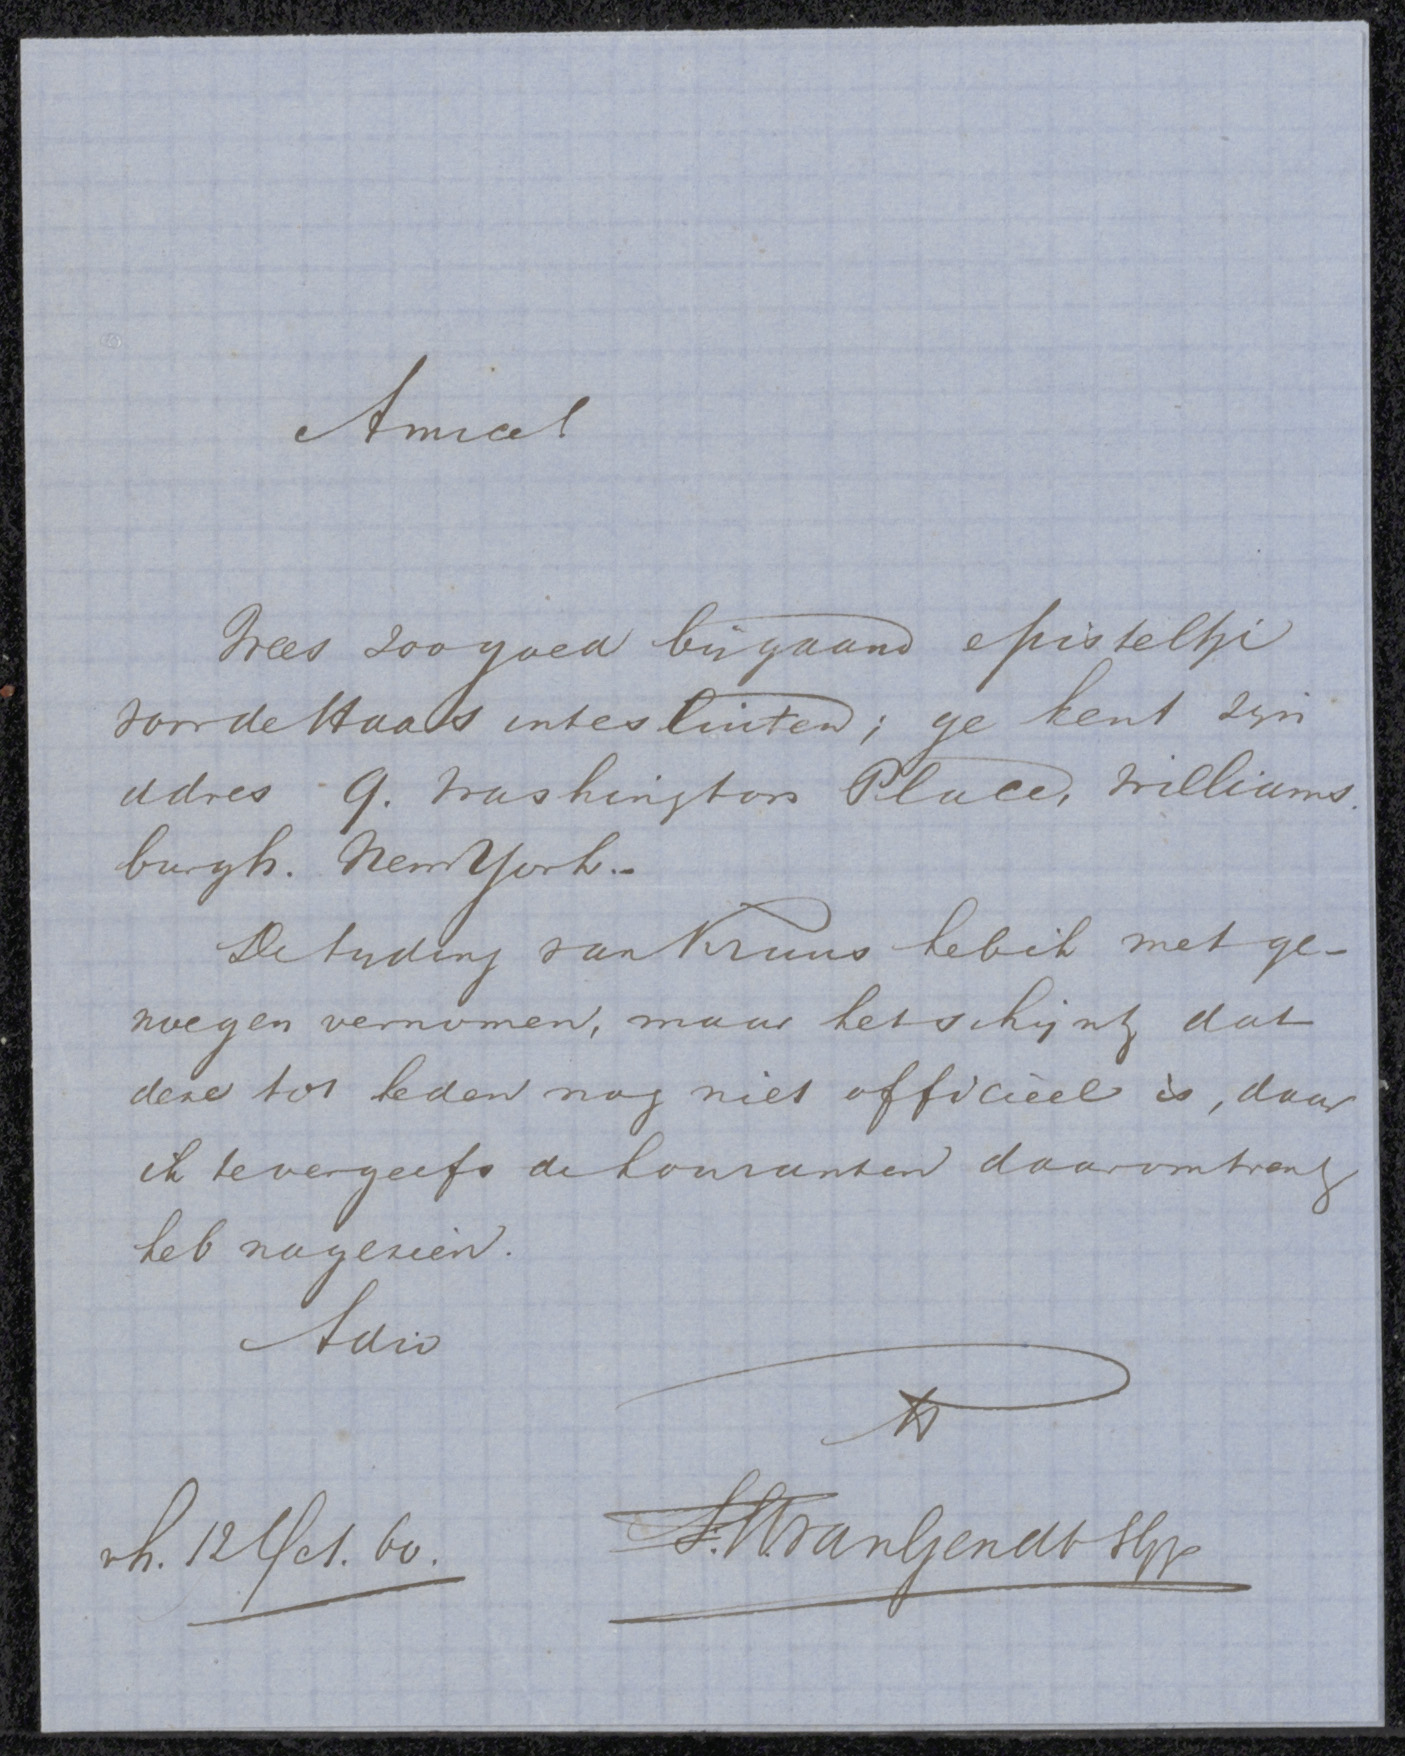 Amice!
Wees zoo goed bijgaand episteltje
voor de Haas in te sluiten; ge kent zijn
adres 9. Washington Place, Williams-
burgh. New York.-
De tijding van Kruus heb ik met ge-
noegen vernomen, maar het schijnt dat
deze tot heden nog niet officieel is, daar
ik te vergeefs de kouranten daaromtrent
heb nagezien.
Adio
12 Oct. 60.
van Gendt